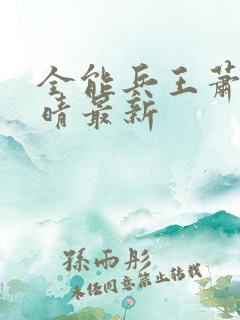 全能兵王萧
晴最新
孫雨彤
未经同意禁止转载